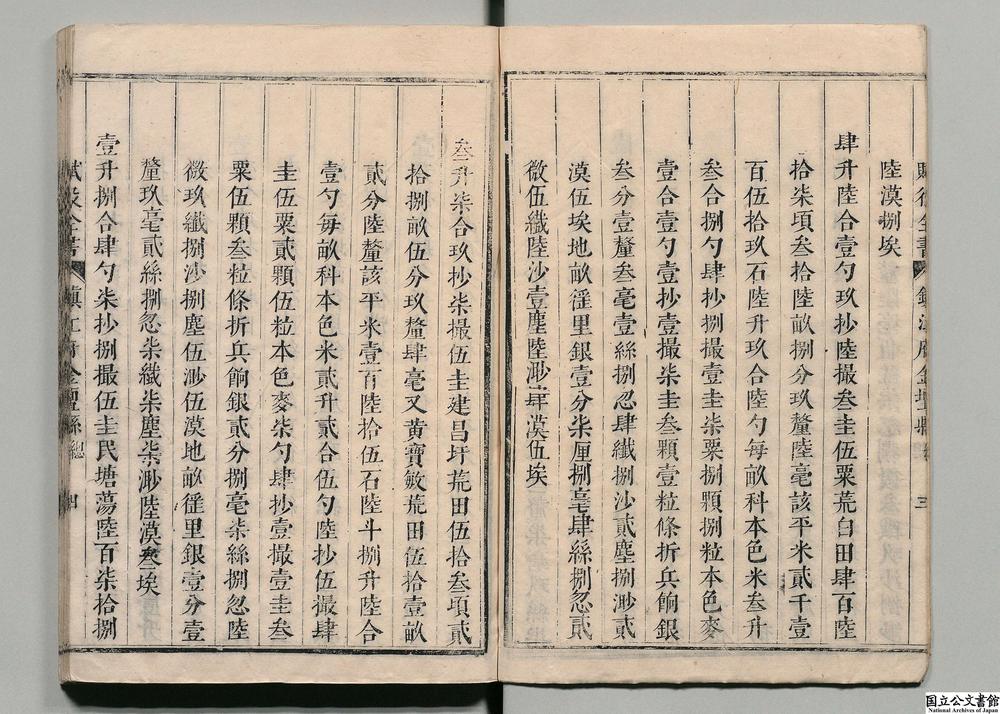 陸漠捌埃
肆升陸合壹勺玖抄陸撮叁圭伍粟荒白田肆百陸
拾柒頃叁拾陸畝捌分玖釐陸毫該平米貳千壹
百伍拾玖石陸升玖合陸勺每畝科本色米叁升
叁合捌勺肆抄捌撮壹圭柒粟捌顆捌粒本色麥
壹合壹勺壹抄壹撮柒圭叁顆壹粒條折兵餉銀
叁分壹釐叁毫壹絲捌忽肆纖捌沙貳塵捌渺貳
漠伍埃地畝徭里銀壹分柒厘捌毫肆絲捌忽貳
微伍纖陸沙壹塵陸渺肆漠伍埃
叁升柒合玖抄柒撮伍圭建昌圩荒田伍拾叁項貳
拾捌畝伍分玖釐肆毫又黃寶敏荒田伍拾壹畝
貳分陸釐該平米壹百陸拾伍石陸斗捌升陸合
壹勺每畝科本色米貳升貳合伍勺陸抄伍撮肆
圭伍粟貳顆伍粒本色麥柒勺肆抄壹撮壹圭叁
粟伍顆叁粒條折兵餉銀貳分捌毫柒絲捌忽陸
微玖纖捌沙捌塵伍渺伍漠地畝徭里銀壹分壹
釐玖毫貳絲捌忽柒纖柒塵柒渺陸漠叁埃
壹升捌合肆勺柒抄捌撮伍圭民塘蕩陸百柒拾捌
賦役全書 鎮江府金壇縣總 四
国立公文書館
National Archives of Japan